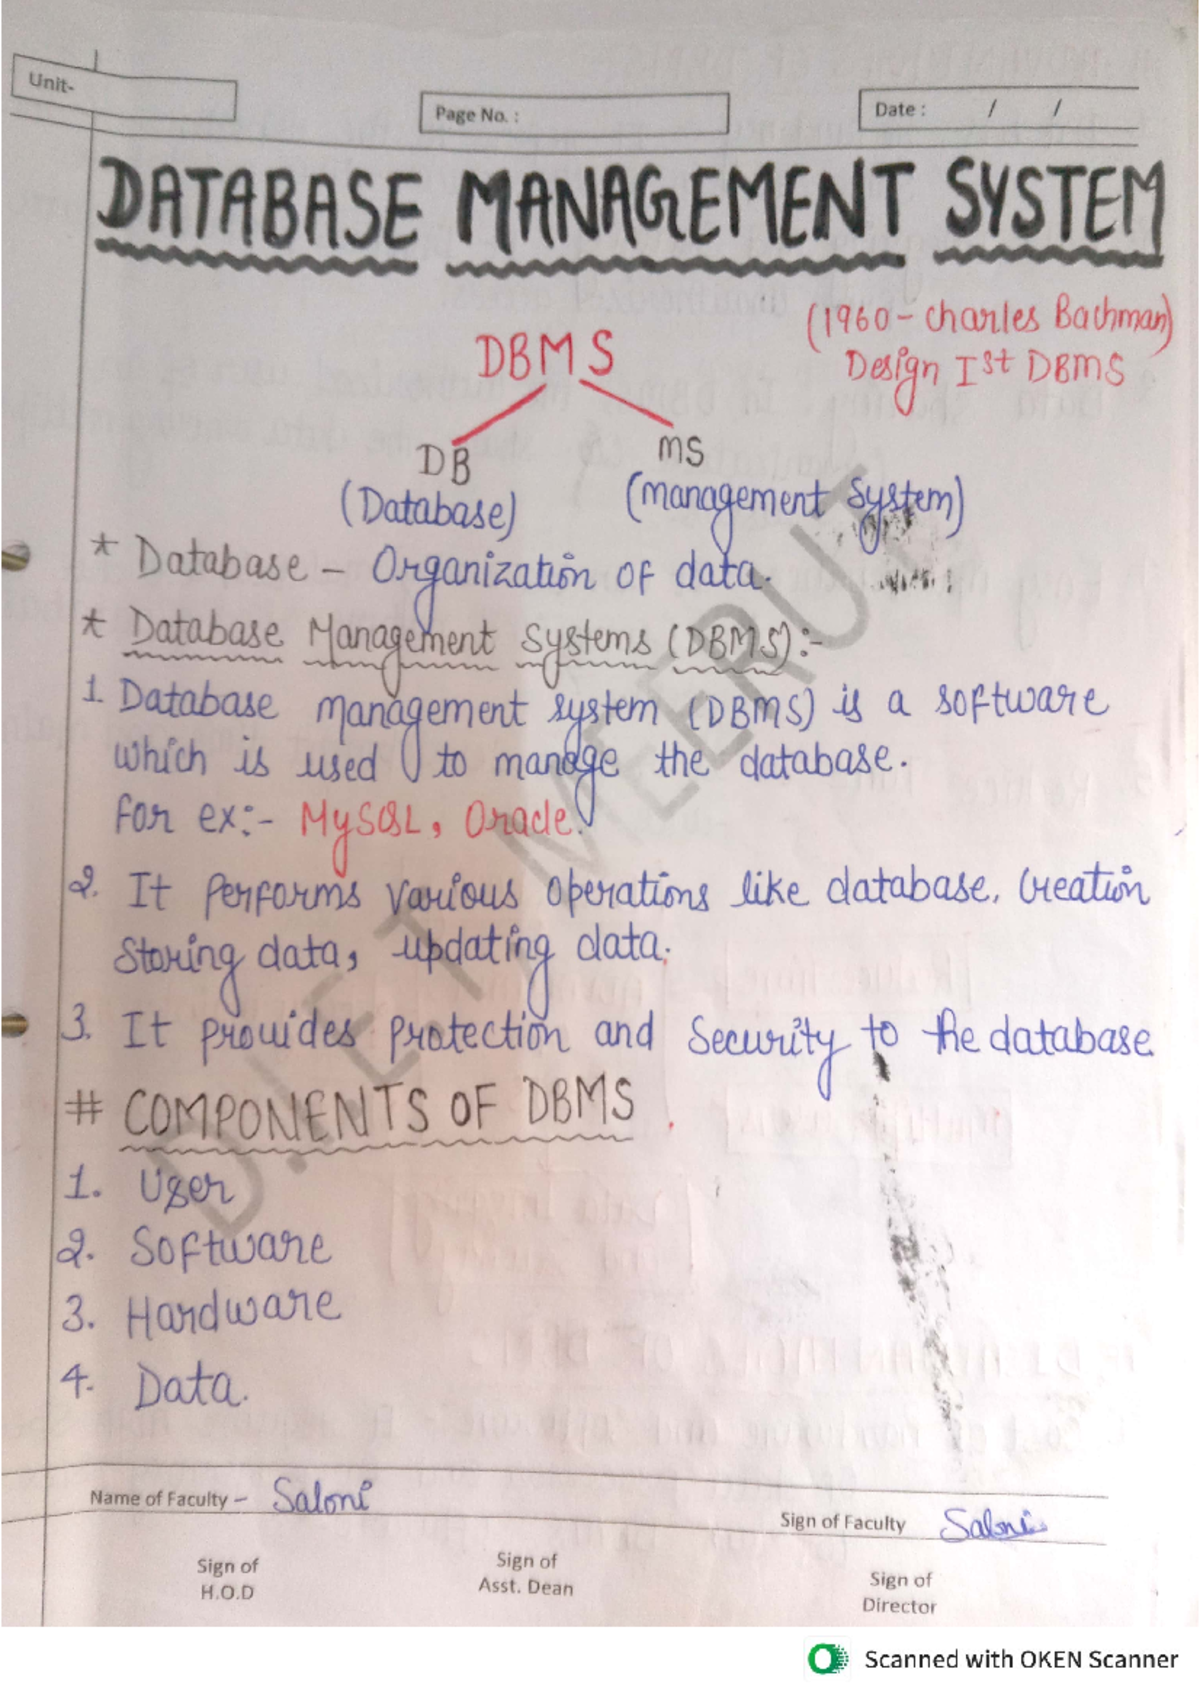 Unit-
Page No. :
Date : / /
DATABASE MANAGEMENT SYSTEM
(1960 - Charles Bachman)
Design Ist DBMS
DBMS
DB MS
(Database) (management System)
* Database - Organization of data.
* Database Management Systems (DBMS):-
1. Database management system (DBMS) is a software
which is used to manage the database.
For ex:- MySQL, Oracle.
2. It performs various operations like database, Creation
Storing data, updating data.
3. It provides protection and Security to the database
# COMPONENTS OF DBMS
1. User
2. Software
3. Hardware
4. Data.
D.I.E.T MEERUT
Name of Faculty - Saloni
Sign of Faculty Saloni
Sign of
H.O.D
Sign of
Asst. Dean
Sign of
Director
Scanned with OKEN Scanner